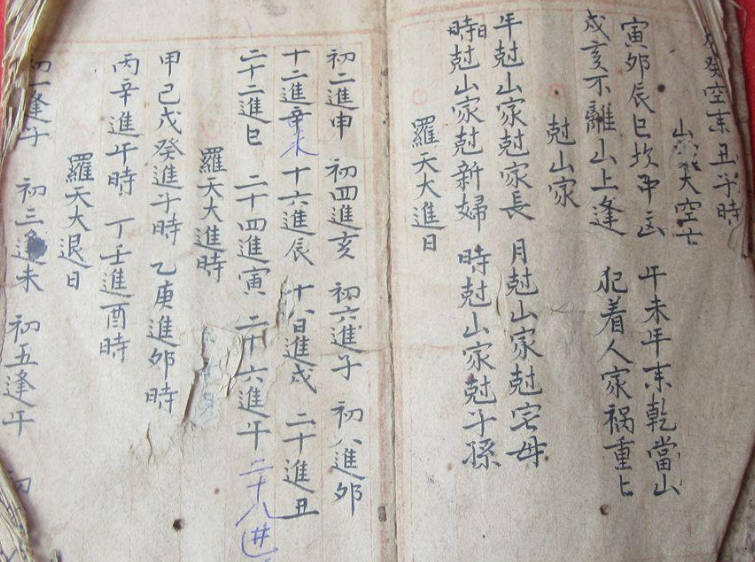 癸空亥丑子時
山家大空亡
寅卯辰巳坎中凶 午未年來乾當山
戌亥不離山上逢 犯着人家祸重七
尅山家
年尅山家尅家長 月尅山家尅宅母
日時尅山家尅新婦 時尅山家尅子孫
羅天大進日
初二進申 初四進亥 初六進子 初八進卯
十二進未 十六進辰 十八日進戌 二十進丑
二十二進巳 二十四進寅 二十六進午 二十八進
羅天大進時
甲己戊癸進子時 乙庚進卯時
丙辛進午時 丁壬進酉時
羅天大退日
初一逢子 初三逢未 初五逢午 初